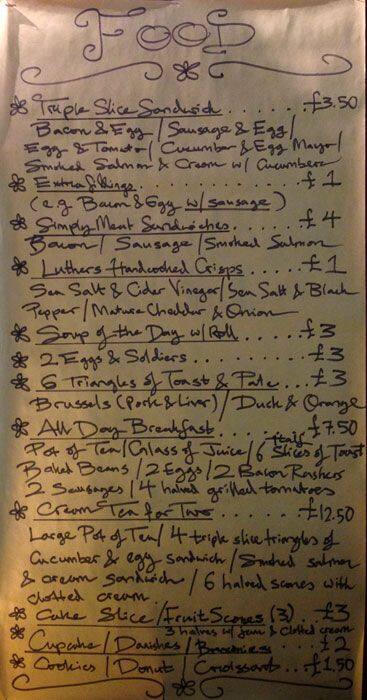 Food
Triple Slice Sandwich ...... £3.50
Bacon & Egg / Sausage & Egg /
Egg & Tomato / Cucumber & Egg Mayo /
Smoked Salmon & Cream w/ Cucumbers
Extra fillings .......... £1
(e.g Bacon & Egg w/ sausage)
Simply Meat Sandwiches .... £4
Bacon / Sausage / Smoked Salmon
Luthers Handcooked Crisps .... £1
Sea Salt & Cider Vinegar / Sea Salt & Black
Pepper / Mature Cheddar & Onion
Soup of the Day w/ Roll .... £3
2 Eggs & Soldiers ........ £3
6 Triangles of Toast & Pate .. £3
Brussels (Pork & Liver) / Duck & Orange
All Day Breakfast ...... £7.50
Pot of Tea / Glass of Juice / 6 Slices of Toast
Baked Beans / 2 Eggs / 2 Bacon Rashers
2 Sausages / 4 halved grilled tomatoes
Cream Tea for Two ..... £12.50
Large Pot of Tea / 4 triple slice triangles of
Cucumber & egg sandwich / Smoked salmon
& cream sandwich / 6 halved scones with
clotted cream
Cake Slice / Fruit Scones (3) .. £3
3 halves w/ jam & clotted cream
Cupcake / Danishes / Brownies .. £2
Cookies / Donut / Croissant .. £1.50